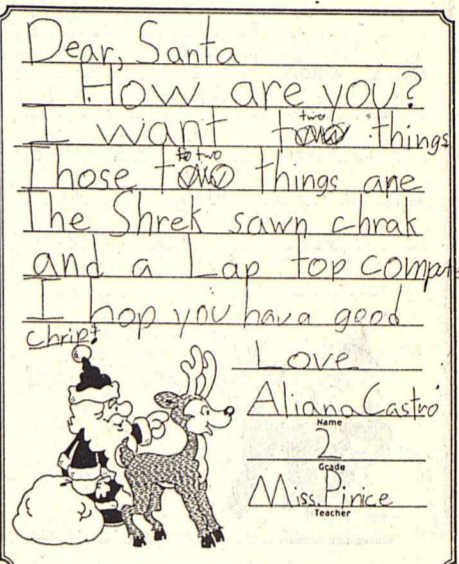 Dear, Santa
How are you?
I want two things
Those two things are
The Shrek sawn chrak
and a Lap top comput
I hop you hava good
chrip?
Love
Aliana Castro
Name
2
Grade
Miss. Pirice
Teacher